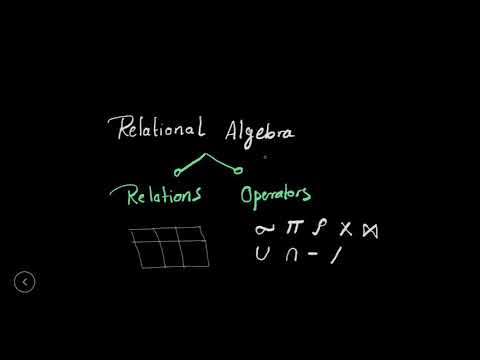 Relational Algebra
Relations Operators
σ π ρ X ⋈
∪ ∩ − /